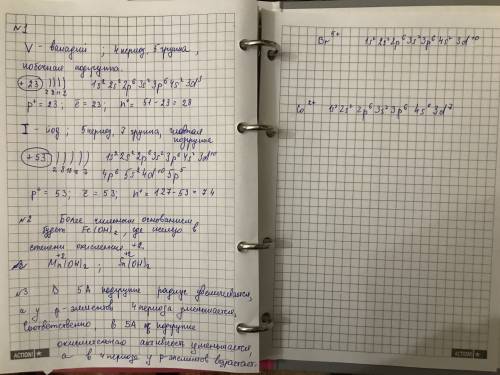 №1
V - ванадий ; 4 период, 5 группа,
побочная подгруппа.
+23 ) ) ) ) 1s² 2s² 2p⁶ 3s² 3p⁶ 4s² 3d³
p⁺ = 23 ; ē = 23 ; n⁰ = 51 - 23 = 28
I - йод ; 5 период, 7 группа, главная
подгруппа
+53 ) ) ) ) ) 1s² 2s² 2p⁶ 3s² 3p⁶ 4s² 3d¹⁰
4p⁶ 5s² 4d¹⁰ 5p⁵
p⁺ = 53 ; ē = 53 ; n⁰ = 127 - 53 = 74
№2 Более сильным основанием
будет Fe(OH)₂, где железо в
степени окисления +2.
+2 +2
Mn(OH)₂ ; Sn(OH)₂
№3 В 5А подгруппе радиус увеличивается,
а у p-элементов 4 периода уменьшается,
Соответственно в 5А подгруппе
окислительная активность уменьшается,
а в 4 периоде у p элементов возрастает.
ACTION!
Br⁵⁺ 1s² 2s² 2p⁶ 3s² 3p⁶ 4s² 3d¹⁰
Co²⁺ 1s² 2s² 2p⁶ 3s² 3p⁶ 4s⁰ 3d⁷
ACTION!